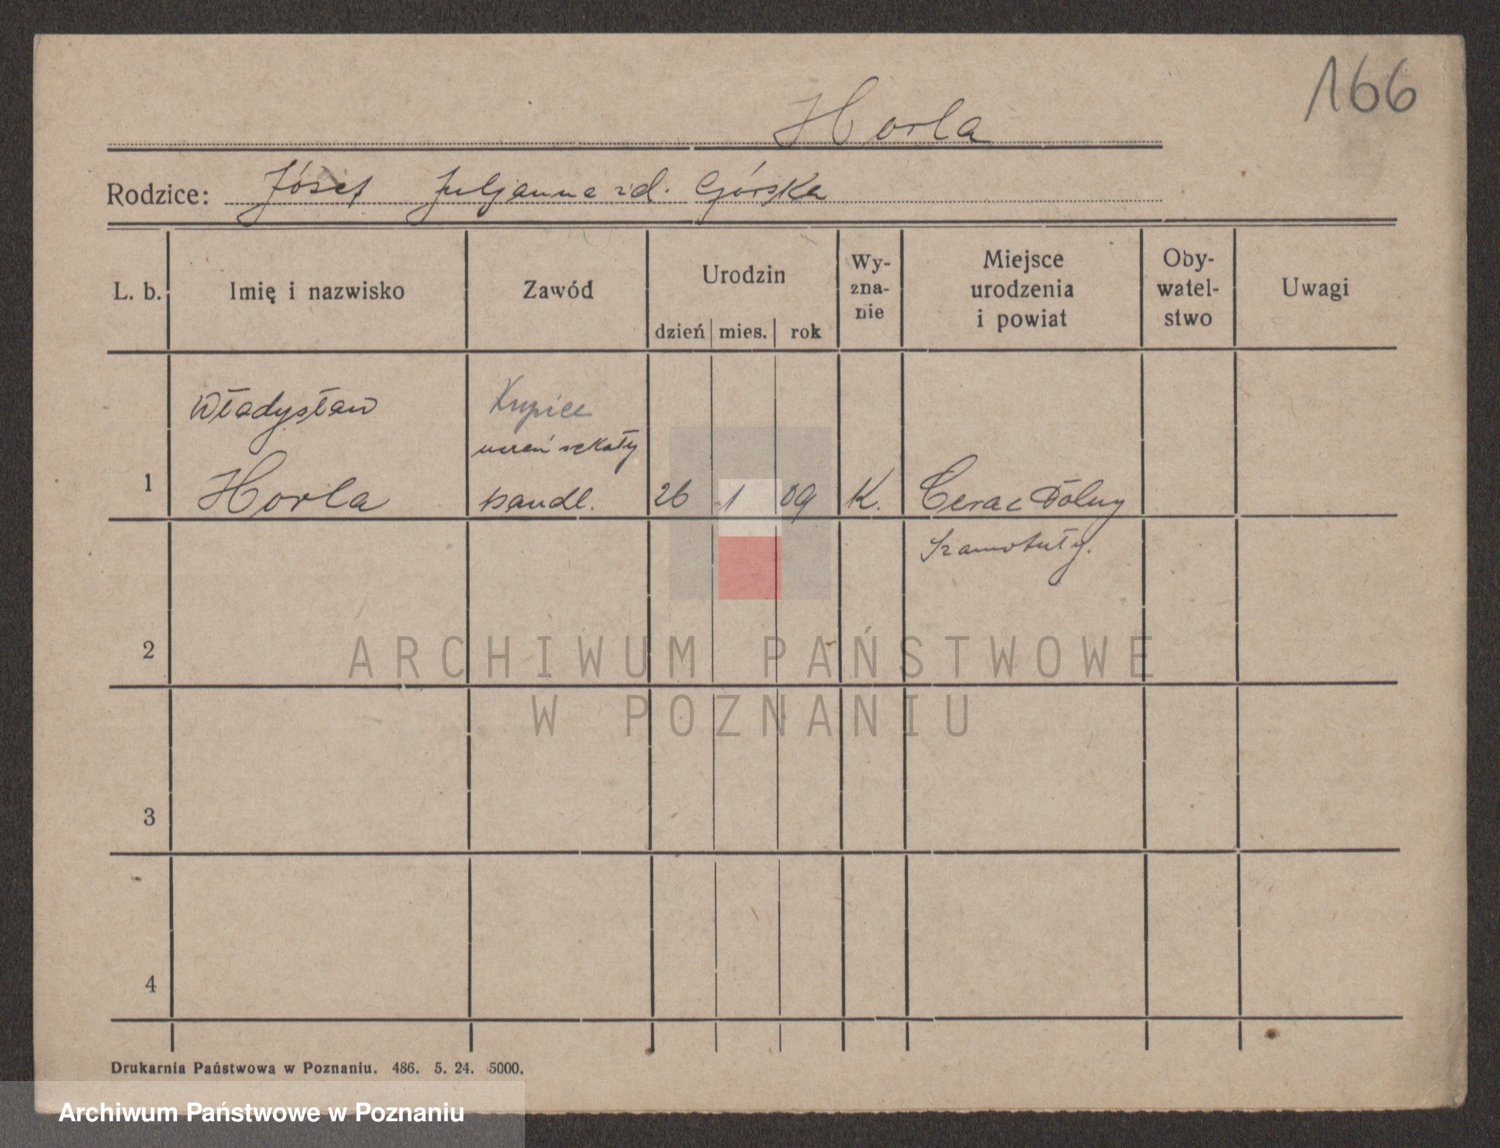 166
Horla
Rodzice: Józef Juljanna zd. Górska
L. b. Imię i nazwisko Zawód Urodzin Wy-zna-nie Miejsce urodzenia i powiat Oby-watel-stwo Uwagi
dzień mies. rok
Władysław Kupiec
uczeń szkoły
1 Horla handl. 26 1 09 K. Cerac Dolny
Szamotuły.
2
ARCHIWUM PAŃSTWOWE
W POZNANIU
3
4
Drukarnia Państwowa w Poznaniu. 486. 5. 24. 5000.
Archiwum Państwowe w Poznaniu